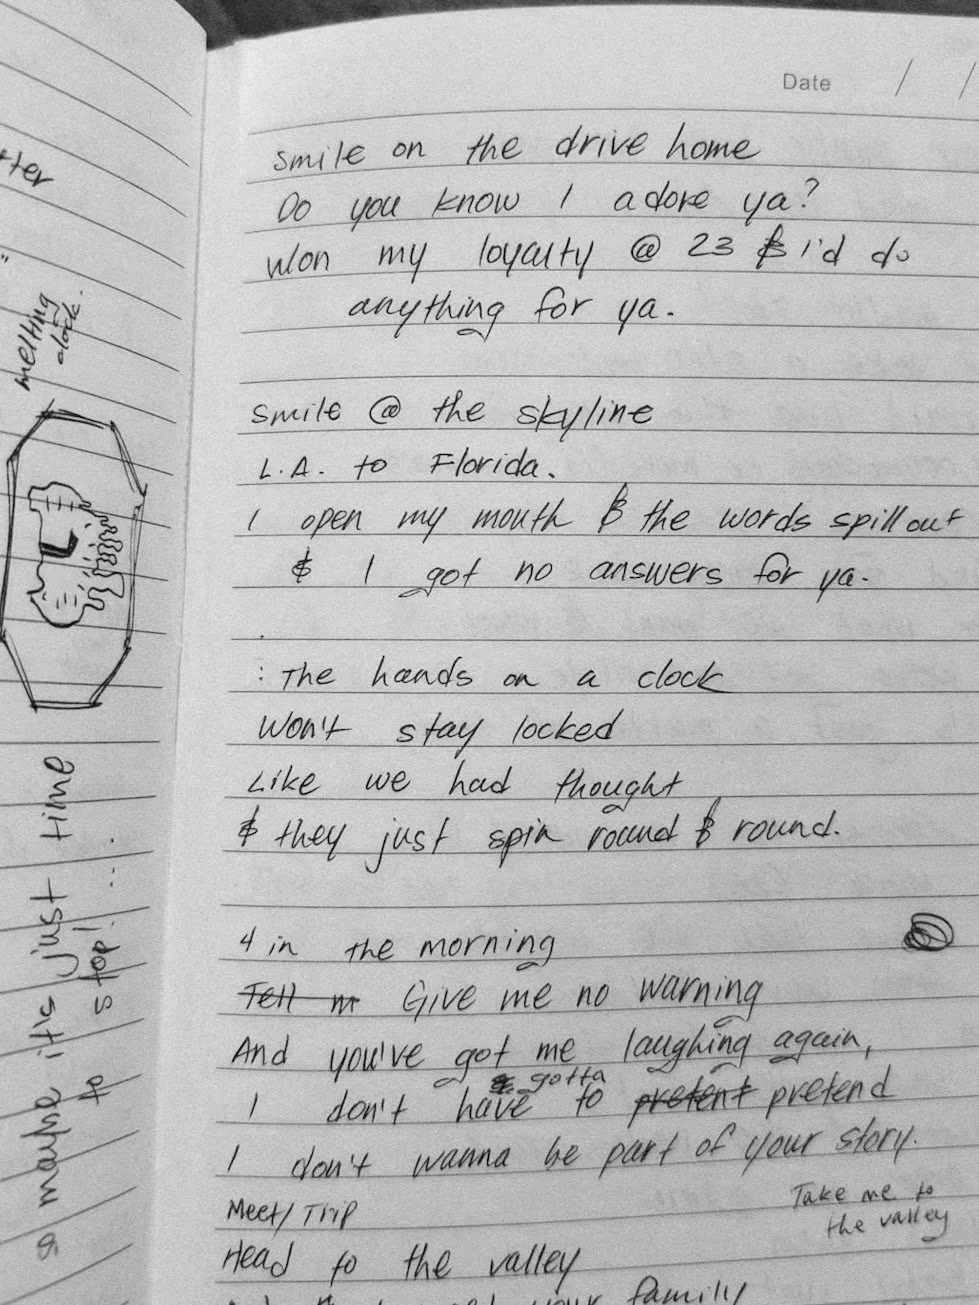 tter
melting
clock.
so maybe it's just time
to stop! ...
Date / /
Smile on the drive home
Do you know I adore ya?
Won my loyalty @ 23 & i'd do
anything for ya.
smile @ the skyline
L.A. to Florida.
I open my mouth & the words spill out
& I got no answers for ya.
: The hands on a clock
Won't stay locked
Like we had thought
& they just spin round & round.
4 in the morning
Tell m Give me no warning
And you've got me laughing again,
gotta
I don't have to pretent pretend
I don't wanna be part of your story.
Meet/Trip
Take me to
the valley
Head to the valley
your family